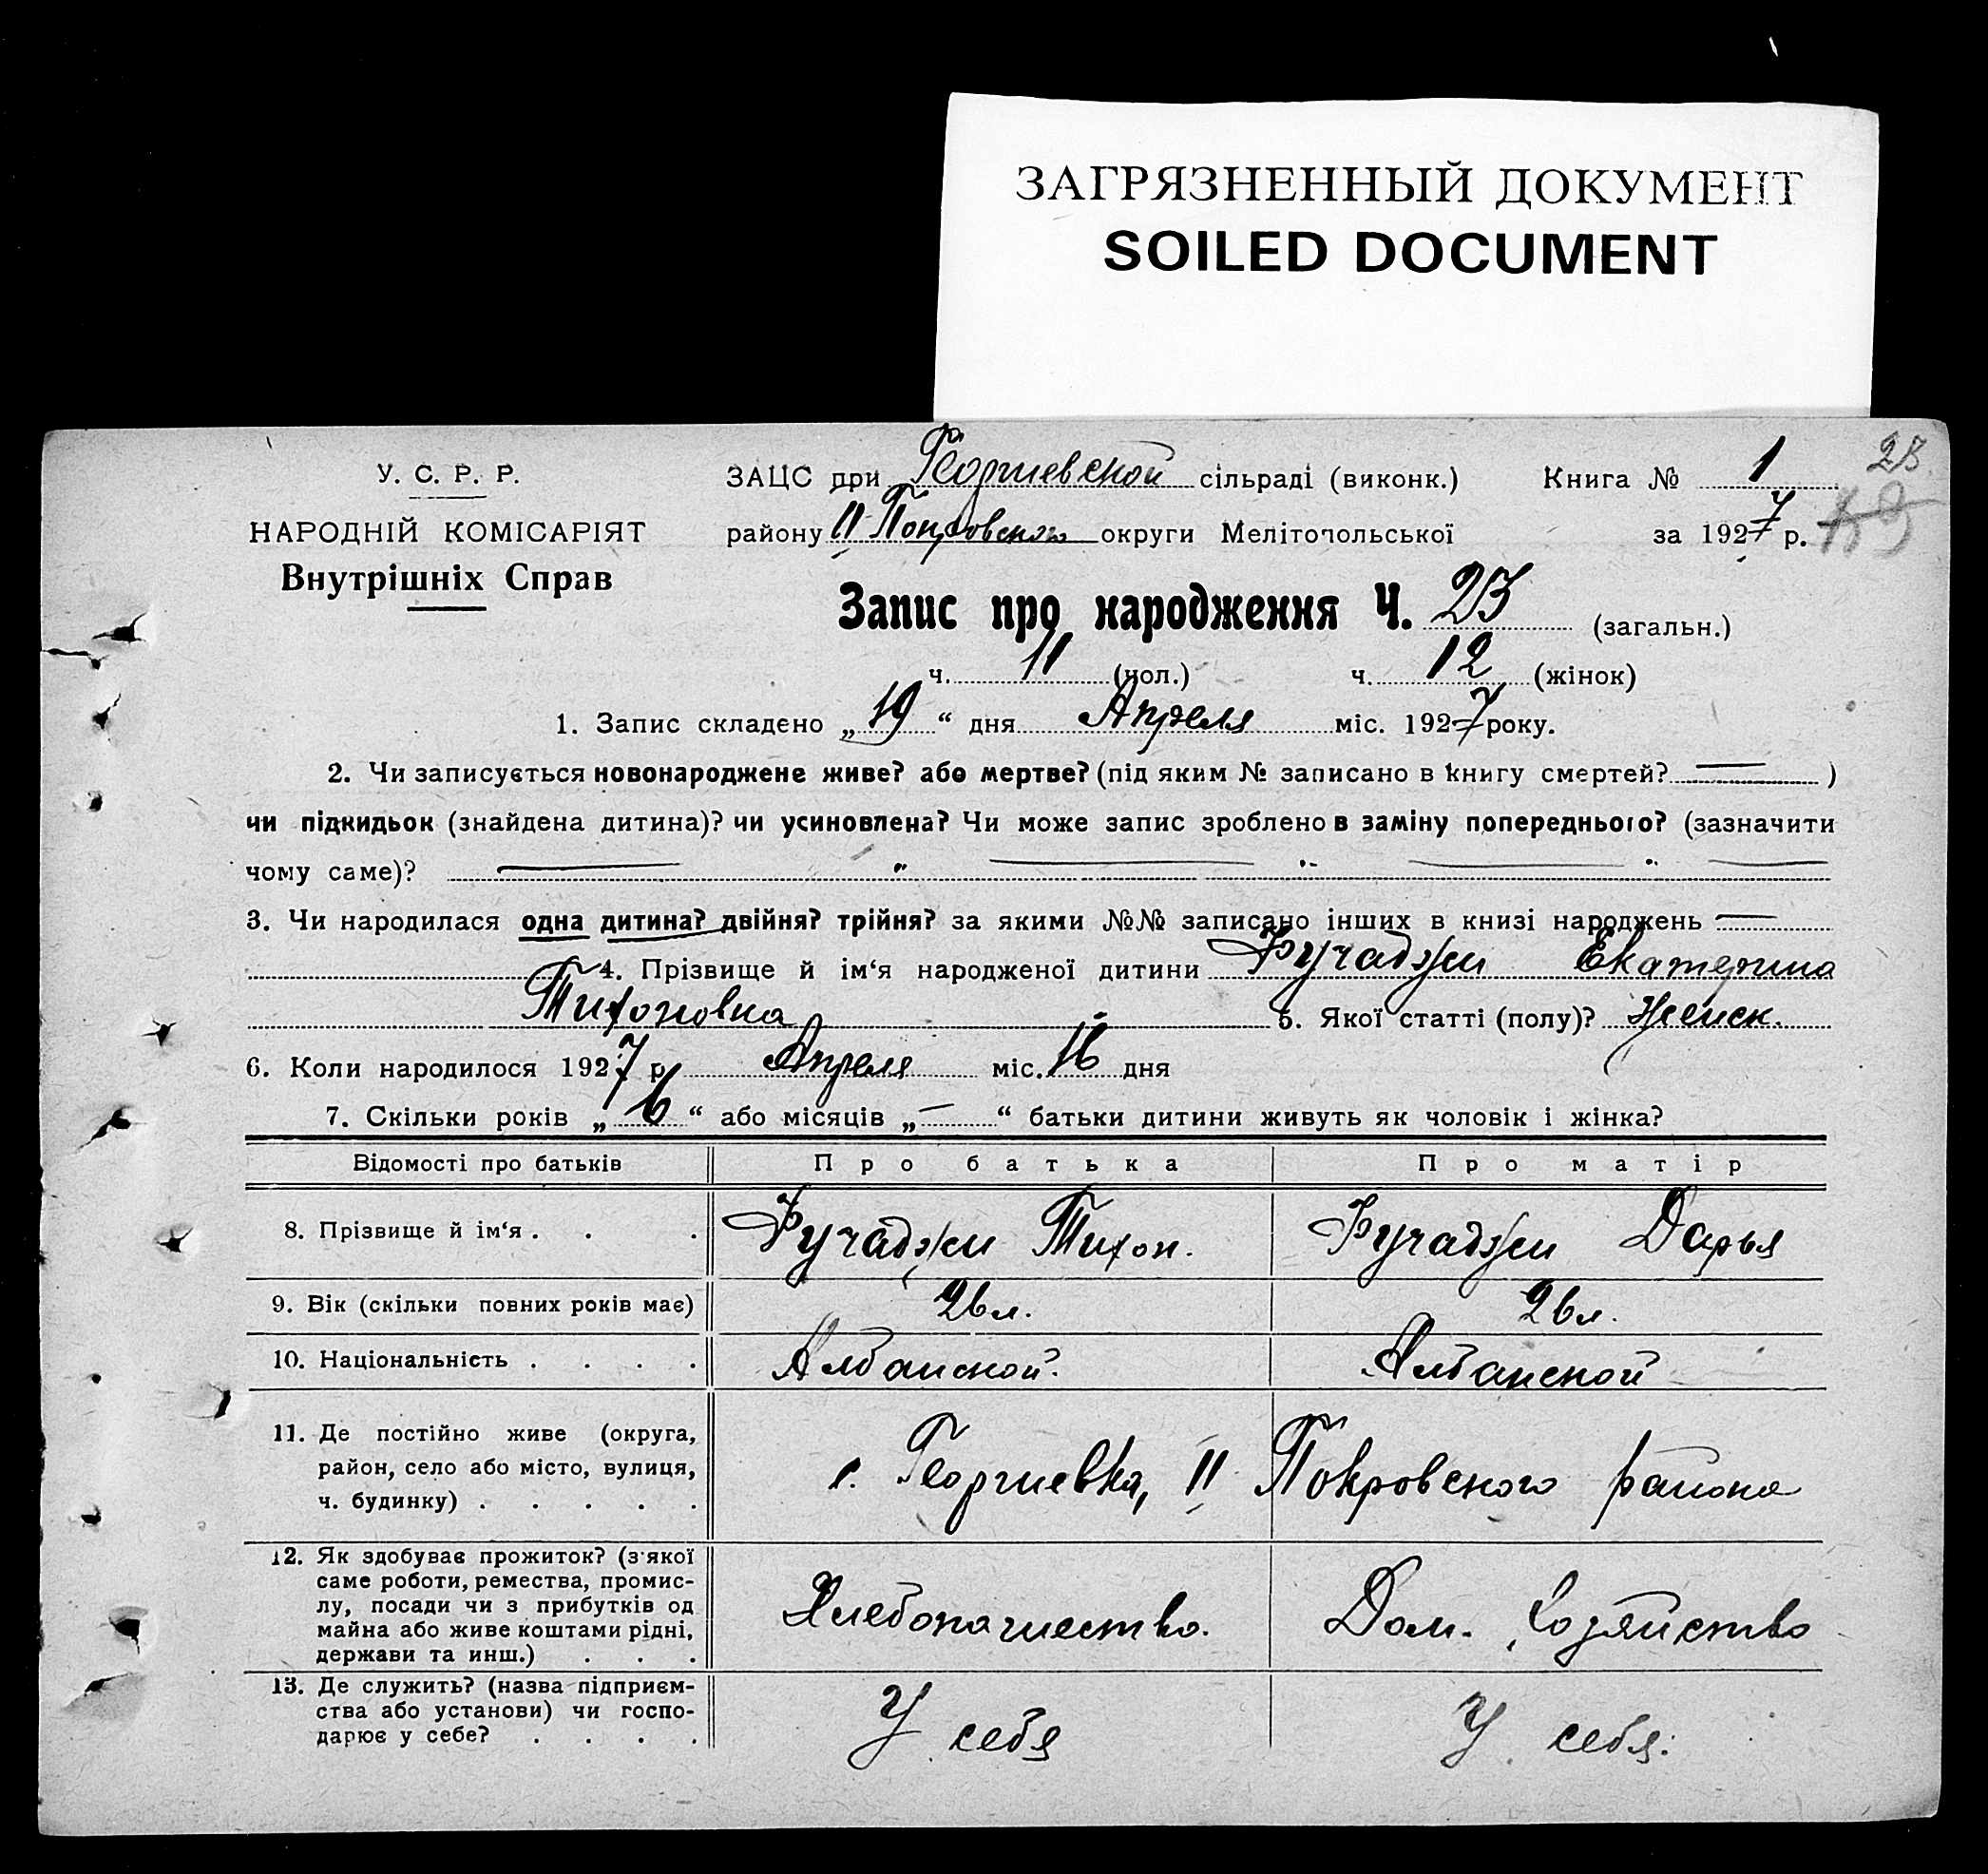 ЗАГРЯЗНЕННЫЙ ДОКУМЕНТ
SOILED DOCUMENT
У. С. Р. Р.
НАРОДНІЙ КОМІСАРІЯТ
Внутрішніх Справ
ЗАЦС при Георгиевской сільраді (виконк.) Книга № 1 23
району II Покровского округи Мелітопольської за 1927 р.
Запис про народження Ч. 23 (загальн.)
ч. 11 (чол.) ч. 12 (жінок)
1. Запис складено „19“ дня Апреля міс. 1927 року.
2. Чи записується новонароджене живе? або мертве? (під яким № записано в книгу смертей? — )
чи підкидьок (знайдена дитина)? чи усиновлена? Чи може запис зроблено в заміну попереднього? (зазначити
чому саме)? — „ — „ — „ —
3. Чи народилася одна дитина? двійня? трійня? за якими №№ записано інших в книзі народжень —
4. Прізвище й ім‘я народженої дитини Фучаджи Екатерина
Тихоновна 5. Якої статті (полу)? Женск.
6. Коли народилося 1927 р. Апреля міс. 16 дня
7. Скільки років „6“ або місяців „—“ батьки дитини живуть як чоловік і жінка?
Відомості про батьків Про батька Про матір
8. Прізвище й ім‘я . . . Фучаджи Тихон. Фучаджи Дарья
9. Вік (скільки повних років має) 26 л. 26 л.
10. Національність . . . . Албанской. Албанской
11. Де постійно живе (округа,
район, село або місто, вулиця,
ч. будинку) . . . . .
с. Георгиевка, II Покровского района
12. Як здобуває прожиток? (з якої
саме роботи, ремества, промис-
лу, посади чи з прибутків од
майна або живе коштами рідні,
держави та инш.) . . .
Хлебопашество. Дом. Хозяйство
13. Де служить? (назва підприєм-
ства або установи) чи госпо-
дарює у себе? . . . .
У себя У себя.